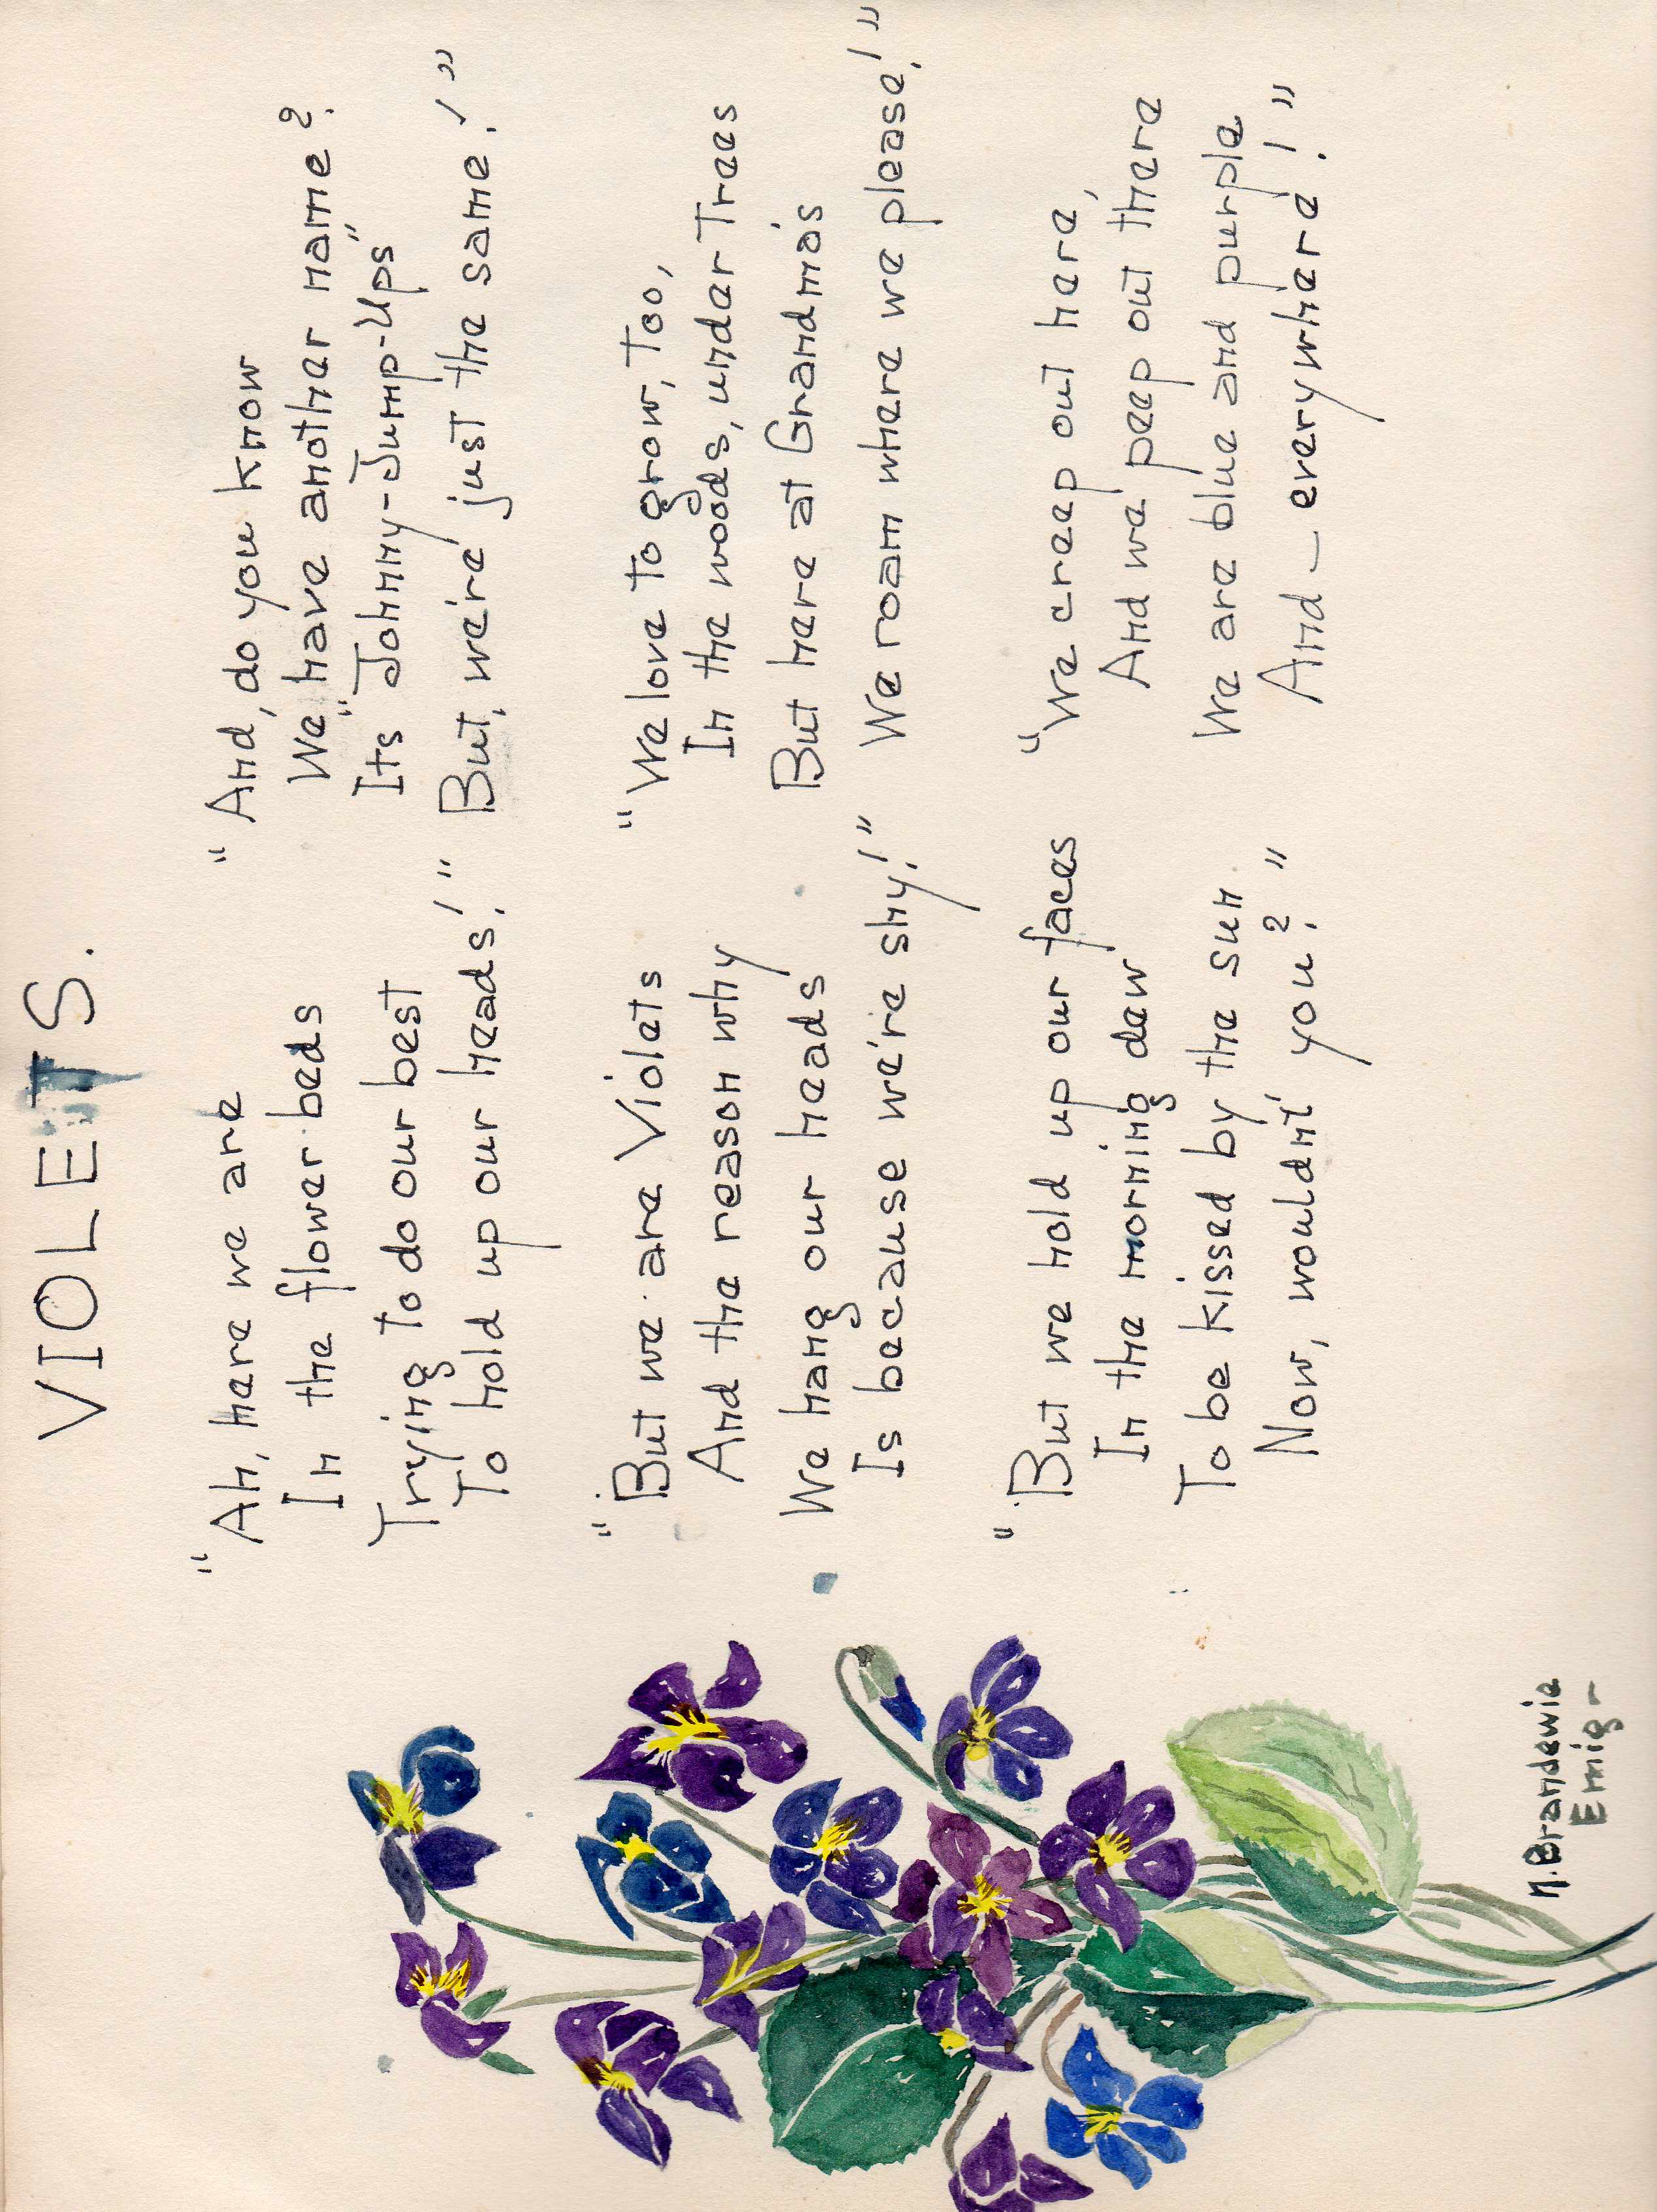 VIOLETS.
"Ah, here we are
In the flower beds
Trying to do our best
To hold up our heads!"
"But we are Violets
And the reason why
We hang our heads
Is because we're shy!"
"But we hold up our faces
In the morning dew
To be kissed by the sun
Now, wouldn't you?"
"And, do you know
We have another name?
Its "Johnny-Jump-Ups"
But, we're just the same!"
"We love to grow, too,
In the woods, under Trees
But here at Grandma's
We roam where we please!"
"We creep out here,
And we peep out there
We are blue and purple
And — everywhere!"
M. Brandewie
Emig –